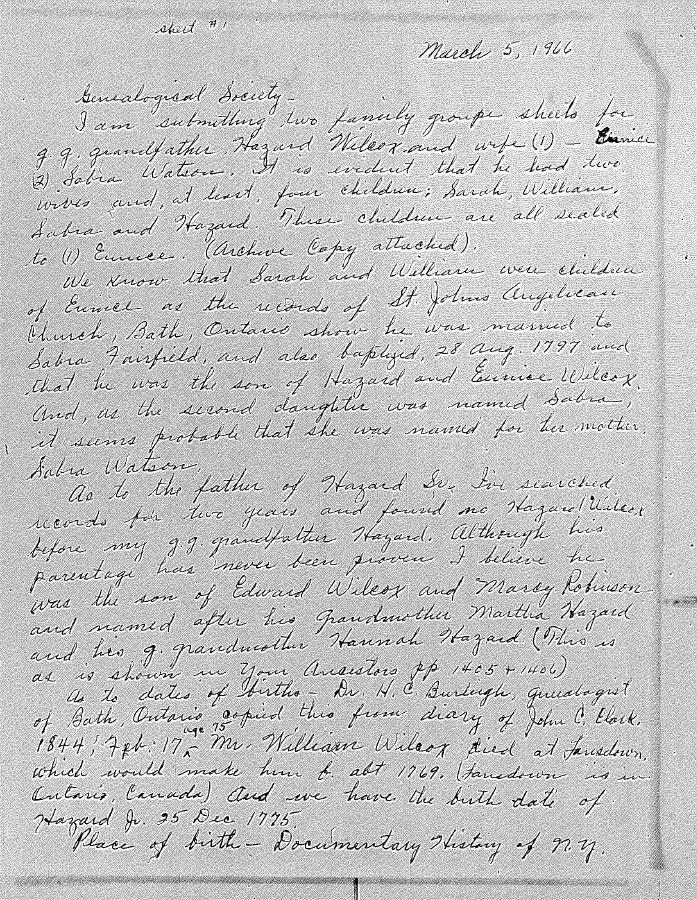 sheet #1
March 5, 1966
Genealogical Society-
I am submitting two family groupe sheets for
g.g. grandfather Hazard Wilcox and wife (1) - Eunice
(2) Sabra Watson. It is evident that he had two
wives and, at least, four children; Sarah, William,
Sabra and Hazard. These children are all sealed
to (1) Eunice. (Archive Copy attached).
We know that Sarah and William were children
of Eunice as the records of St. Johns Angelican
Church, Bath, Ontario show he was married to
Sabra Fairfield, and also baptized, 28 Aug. 1797 and
that he was the son of Hazard and Eunice Wilcox.
And, as the second daughter was named Sabra,
it seems probable that she was named for her mother,
Sabra Watson.
As to the father of Hazard Sr. I've searched
records for two years and found no Hazard Wilcox
before my g.g. grandfather Hazard. Although his
parentage has never been proven I believe he
was the son of Edward Wilcox and Marcy Robinson
and named after his Grandmother Martha Hazard
and his g. grandmother Hannah Hazard. (This is
as is shown in Your Ancestors pp 1405 + 1406)
As to dates of births - Dr. H. C. Burleigh, genealogist
of Bath, Ontario copied this from diary of John C. Clark.
1844, Feb: 17, age 75 Mr. William Wilcox died at Lansdown,
which would make him b. abt 1769. (Lansdown is in
Ontario, Canada) And we have the birth date of
Hazard Jr. 25 Dec 1775.
Place of birth - Documentary History of N.Y.